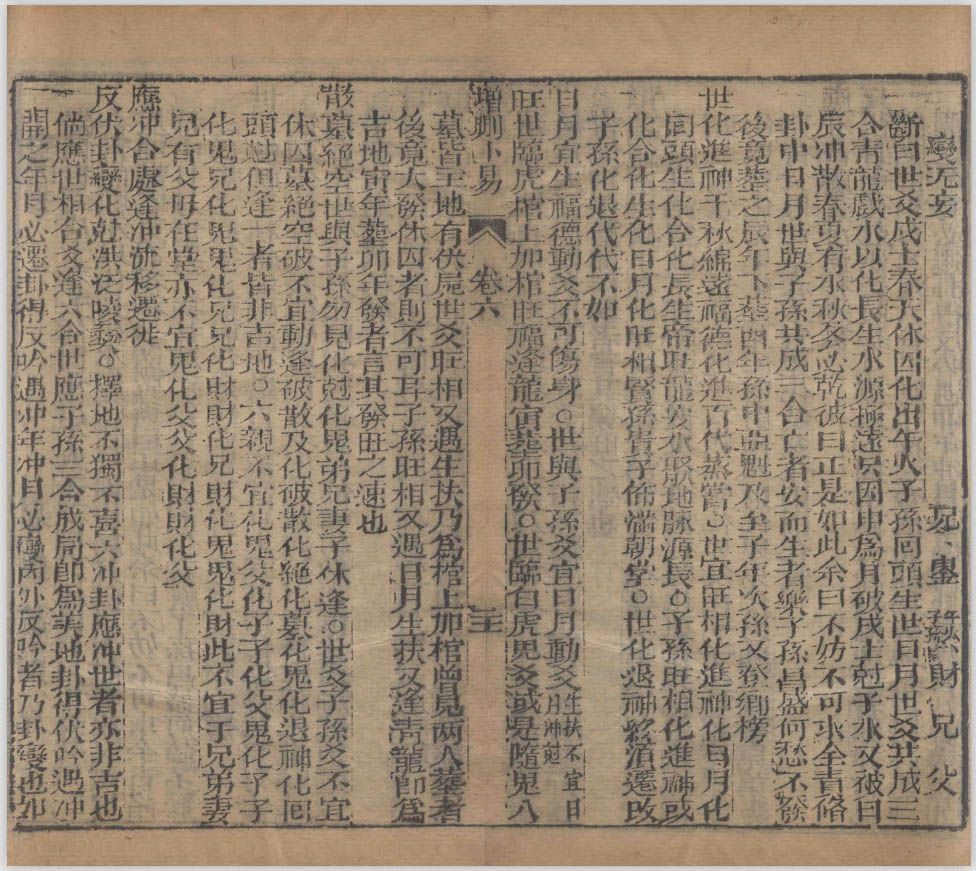 變元妄　　　　兄　蠱　子孫　財　兄　父
斷曰世爻戌土春天休囚化出午火子孫回頭生世日月世爻共成三
合青龍戲水以化長生水源極遠只因申爲月破戌土尅子水又被日
辰冲散春夏有水秋冬必乾彼曰正是如此余曰不妨不可求全責脩
卦中日月世與子孫共成三合亡者安而生者樂子孫昌盛何愁不發
後竟葬之辰年下葬酉年孫中亞魁及至子年次孫又登鄉榜
世化進神千秋綿遠福德化進百代蒸嘗○世宜旺相化進神化日月化
囘頭生化合化長生帝旺龍發水聚地脉源長○子孫旺相化進神或
化合化生化日月化旺相賢孫貴子佈滿朝堂○世化退神終須遷改
子孫化退代代不如
日月宜生福德動爻不可傷身○世與子孫爻宜日月動爻生扶不宜日月冲尅
旺世臨虎棺上加棺旺福逢龍寅葬卯發○世臨白虎鬼爻或是隨鬼入
增刪卜易　卷六　三十
墓皆主地有伏屍世爻旺相又遇生扶乃爲棺上加棺曾見兩人葬者
後竟大發休囚者則不可耳子孫旺相又遇日月生扶又逢青龍卽爲
吉地寅年葬卯年發者言其發旺之速也
散墓絕空世與子孫勿見化尅化鬼弟兄妻子休逢○世爻子孫爻不宜
休囚墓絕空破不宜動逢破散及化破散化絕化墓化鬼化退神化囘
頭尅但逢一者皆非吉地○六親不宜化鬼父化子子化父鬼化子子
化鬼兄化鬼鬼化兄兄化財財化兄財化鬼鬼化財此不宜于兄弟妻
兒有父毋在堂亦不宜鬼化父父化財財化父
應冲合處逢冲流移遷徙
反伏卦變化尅洪泛陵夷○擇地不獨不喜六冲卦應冲世者亦非吉也
倘應世相合爻逢六合世應子孫三合成局卽爲美地卦得伏吟遇冲
開之年月必遷卦得反吟遇冲年冲日必變內外反吟者乃卦變也如